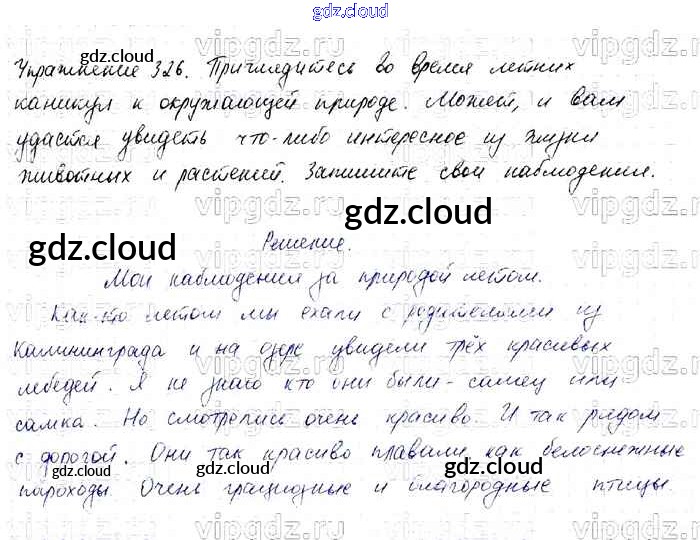 gdz.cloud
Упражнение 326. Приглядитесь во время летних
каникул к окружающей природе. Может, и вам
удастся увидеть что-либо интересное из жизни
животных и растений. Запишите свои наблюдения.
Решение.
Мои наблюдения за природой летом.
Как-то летом мы ехали с родителями из
Калининграда и на озере увидели трёх красивых
лебедей. Я не знаю кто они были - самец или
самка. Но смотрелись очень красиво. И так рядом
с дорогой. Они так красиво плавали, как белоснежные
пароходы. Очень грациозные и благородные птицы.